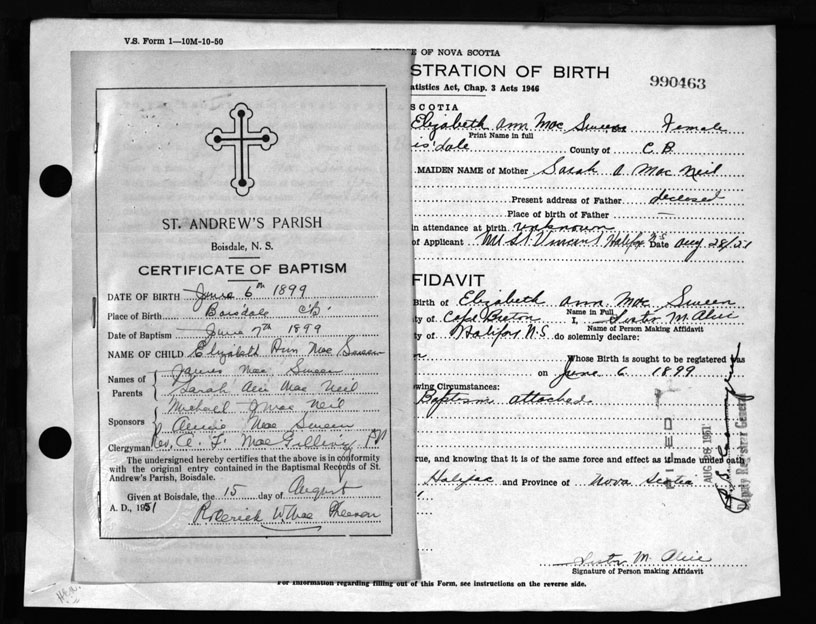 V.S. Form 1—10M-10-50
ST. ANDREW'S PARISH
Boisdale, N. S.
CERTIFICATE OF BAPTISM
DATE OF BIRTH June 6th 1899
Place of Birth Boisdale C.B.
Date of Baptism June 7th 1899
NAME OF CHILD Elizabeth Ann Mac Sween
Names of Parents James Mac Sween
Sarah Ann Mac Neil
Sponsors Michael J Mac Neil
Annie Mac Sween
Clergyman Rev. A. F. Mac Gillivry P.P.
The undersigned hereby certifies that the above is in conformity
with the original entry contained in the Baptismal Records of St.
Andrew's Parish, Boisdale.
Given at Boisdale, the 15 day of August
A. D., 1951 Roderick W. Mac
OF NOVA SCOTIA
STRATION OF BIRTH
990463
atistics Act, Chap. 3 Acts 1946
SCOTIA
Elizabeth Ann Mac Sween Female
Print Name in full
dale County of C B
MAIDEN NAME of Mother Sarah A Mac Neil
Present address of Father deceased
Place of birth of Father —
in attendance at birth unknown
of Applicant Mt St. Vincent Halifax N.S. Date Aug 28/51
FIDAVIT
Birth of Elizabeth Ann Mac Sween
Name in Full
ty of Cape Breton I, Sister M. Alice
Name of Person Making Affidavit
ty of Halifax N.S. do solemnly declare:
Whose Birth is sought to be registered was
on June 6 1899
wing Circumstances:
Baptism attached.
rue, and knowing that it is of the same force and effect as if made under oath
Halifax and Province of Nova Scotia
FILED
AUG 28 1951
Deputy Registrar General
Sister M. Alice
Signature of Person making Affidavit
For information regarding filling out of this Form, see instructions on the reverse side.